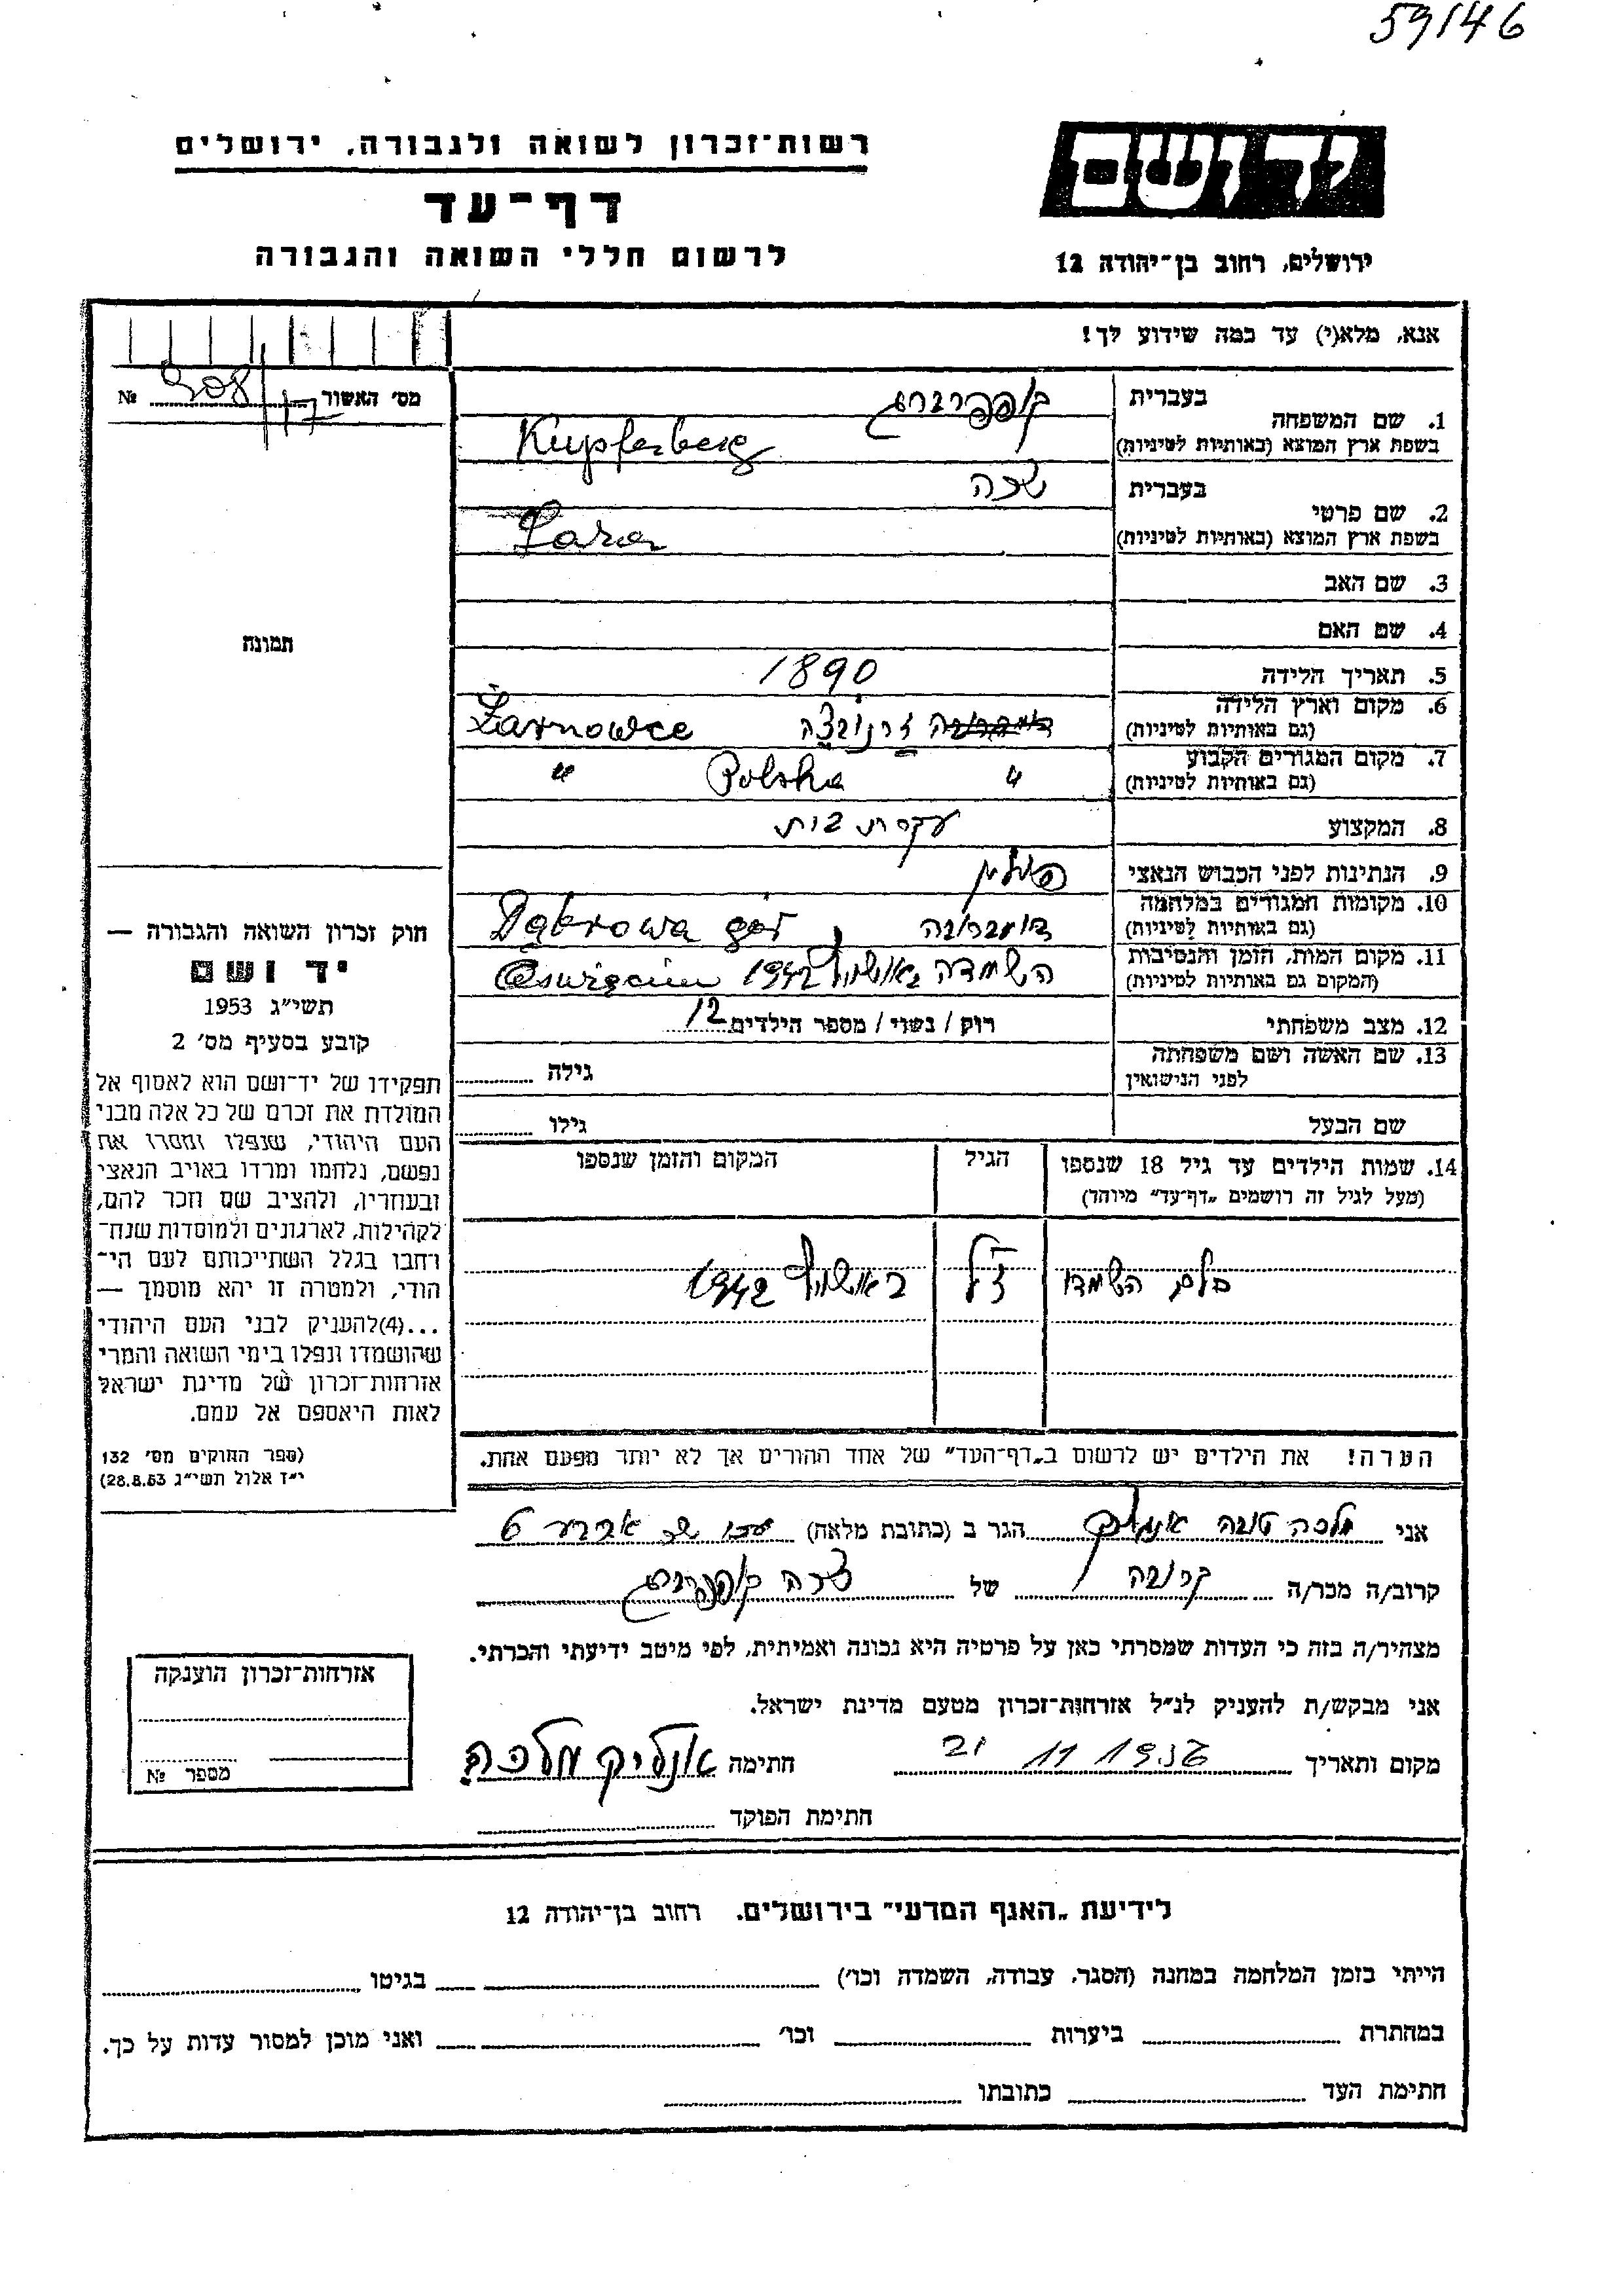 59146
יד ושם
ירושלים, רחוב בן־יהודה 12
רשות־זכרון לשואה ולגבורה, ירושלים
דף־עד
לרשום חללי השואה והגבורה
אנא, מלא(י) עד כמה שידוע לך!
מס' האשור 908/17 №
1. שם המשפחה בעברית קופפרברג
בשפת ארץ המוצא (באותיות לטיניות) Kupferberg
2. שם פרטי בעברית שרה
בשפת ארץ המוצא (באותיות לטיניות) Sara
3. שם האב
4. שם האם
5. תאריך הלידה 1890
6. מקום וארץ הלידה (גם באותיות לטיניות) זרנובצה Żarnowce
7. מקום המגורים הקבוע (גם באותיות לטיניות) " Polska "
8. המקצוע עקרת בית
9. הנתינות לפני הכבוש הנאצי פולין
10. מקומות המגורים במלחמה (גם באותיות לטיניות) דומברובה Dąbrowa gór
11. מקום המות, הזמן והנסיבות (המקום גם באותיות לטיניות) השמדה באושויץ 1942 Oswięcim
12. מצב משפחתי רוק / נשוי / מספר הילדים 12
13. שם האשה ושם משפחתה לפני הנישואין גילה
שם הבעל גילו
14. שמות הילדים עד גיל 18 שנספו (מעל לגיל זה רושמים „דף־עד" מיוחד) הגיל המקום והזמן שנספו
כולם הושמדו באושויץ 1942
הערה! את הילדים יש לרשום ב„דף־העד" של אחד ההורים אך לא יותר מפעם אחת.
תמונה
חוק זכרון השואה והגבורה —
יד ושם
תשי"ג 1953
קובע בסעיף מס' 2
תפקידו של יד־ושם הוא לאסוף אל
המולדת את זכרם של כל אלה מבני
העם היהודי, שנפלו ומסרו את
נפשם, נלחמו ומרדו באויב הנאצי
ובעוזריו, ולהציב שם וזכר להם,
לקהילות, לארגונים ולמוסדות שנח־
רבו בגלל השתייכותם לעם הי־
הודי, ולמטרה זו יהא מוסמך —
...(4)להעניק לבני העם היהודי
שהושמדו ונפלו בימי השואה והמרי
אזרחות־זכרון של מדינת ישראל
לאות היאספם אל עמם.
(ספר החוקים מס' 132
י"ד אלול תשי"ג 28.8.53)
אני מלכה טובה הגר ב (כתובת מלאה) 6
קרוב/ה מכר/ה קרובה של שרה קופפרברג
מצהיר/ה בזה כי העדות שמסרתי כאן על פרטיה היא נכונה ואמיתית, לפי מיטב ידיעתי והכרתי.
אני מבקש/ת להעניק לנ"ל אזרחות־זכרון מטעם מדינת ישראל.
מקום ותאריך 21 11 חתימה אנגליק מלכה
חתימת הפוקד
אזרחות־זכרון הוענקה
מספר №
לידיעת „האגף המדעי" בירושלים, רחוב בן־יהודה 12
הייתי בזמן המלחמה במחנה (הסגר, עבודה, השמדה וכו') בגיטו
במחתרת ביערות וכו' ואני מוכן למסור עדות על כך.
חתימת העד כתובתו